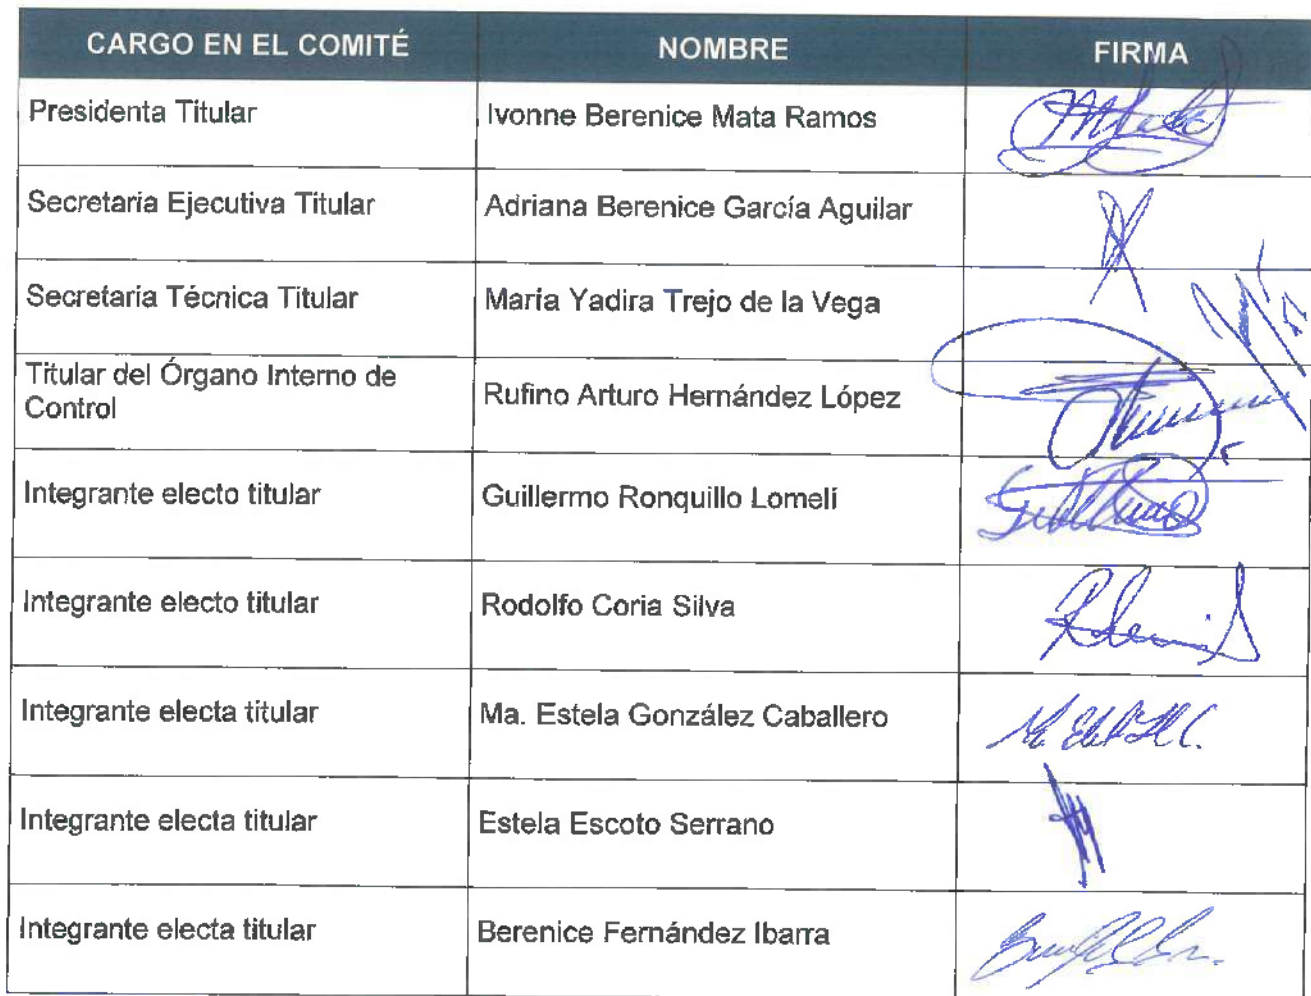 CARGO EN EL COMITÉ NOMBRE FIRMA
Presidenta Titular Ivonne Berenice Mata Ramos
Secretaria Ejecutiva Titular Adriana Berenice García Aguilar
Secretaria Técnica Titular María Yadira Trejo de la Vega
Titular del Órgano Interno de
Control Rufino Arturo Hernández López
Integrante electo titular Guillermo Ronquillo Lomelí
Integrante electo titular Rodolfo Coria Silva
Integrante electa titular Ma. Estela González Caballero
Integrante electa titular Estela Escoto Serrano
Integrante electa titular Berenice Fernández Ibarra